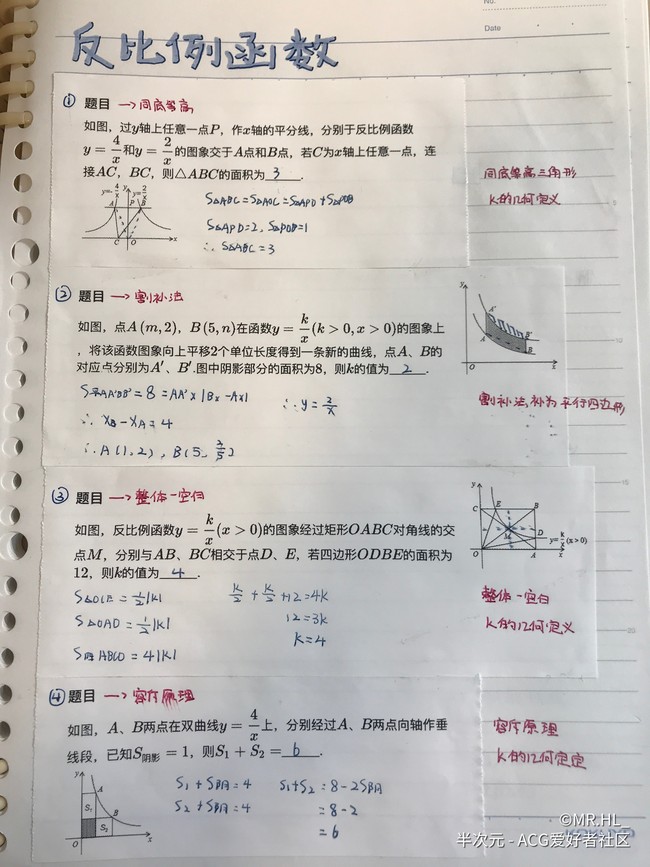 No.
Date
反比例函数
① 题目 →同底等高
如图，过y轴上任意一点P，作x轴的平分线，分别于反比例函数
y=4/x和y=2/x的图象交于A点和B点，若C为x轴上任意一点，连
接AC，BC，则△ABC的面积为 3 .
y=-4/x y=2/x
A P B
C O x
S△ABC=S△AOC=S△APD+S△POB
S△APD=2，S△POB=1
∴S△ABC=3
同底等高三角形
K的几何定义
② 题目 →割补法
如图，点A(m,2)，B(5,n)在函数y=k/x(k>0,x>0)的图象上
，将该函数图象向上平移2个单位长度得到一条新的曲线，点A、B的
对应点分别为A′、B′.图中阴影部分的面积为8，则k的值为 2 .
y A′ B′ A B O x
=8=AA′×|Bx-Ax|
∴xB-xA=4
∴A(1,2)，B(5,2/5)
∴y=2/x
割补法,补为平行四边形
③ 题目 →整体-空白
如图，反比例函数y=k/x(x>0)的图象经过矩形OABC对角线的交
点M，分别与AB、BC相交于点D、E，若四边形ODBE的面积为
12，则k的值为 4 .
y C E B M D O A x
y=k/x(x>0)
S△OCE=1/2|K|
S△OAD=1/2|K|
4|K|
K/2+K/2+12=4K
12=3K
K=4
整体-空白
K的几何定义
④ 题目 →容斥原理
如图，A、B两点在双曲线y=4/x上，分别经过A、B两点向轴作垂
线段，已知S阴影=1，则S₁+S₂= 6 .
y A S₁ B S₂ O x
S1+S阴=4
S2+S阴=4
S1+S2=8-2S阴
=8-2
=6
容斥原理
K的几何定定
©MR.HL
半次元 - ACG爱好者社区